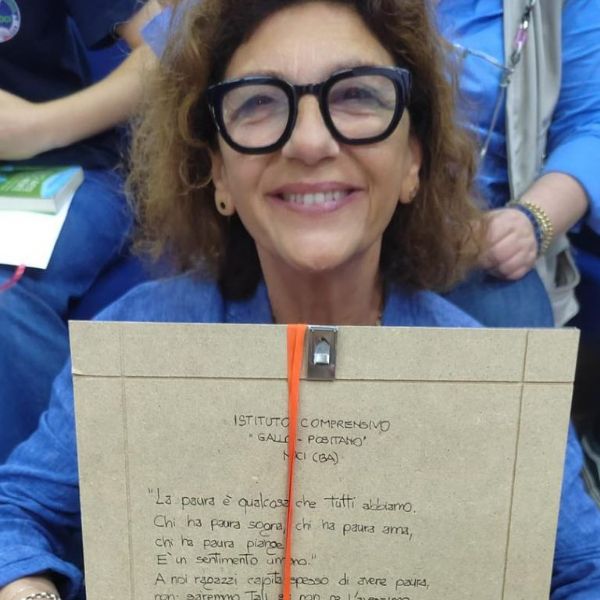 ISTITUTO COMPRENSIVO
"GALLO - POSITANO"
NOCI (BA)
"La paura è qualcosa che tutti abbiamo.
Chi ha paura sogna, chi ha paura ama,
chi ha paura piange.
È un sentimento umano."
A noi ragazzi capita spesso di avere paura,
non saremmo tali se non ce l'avessimo